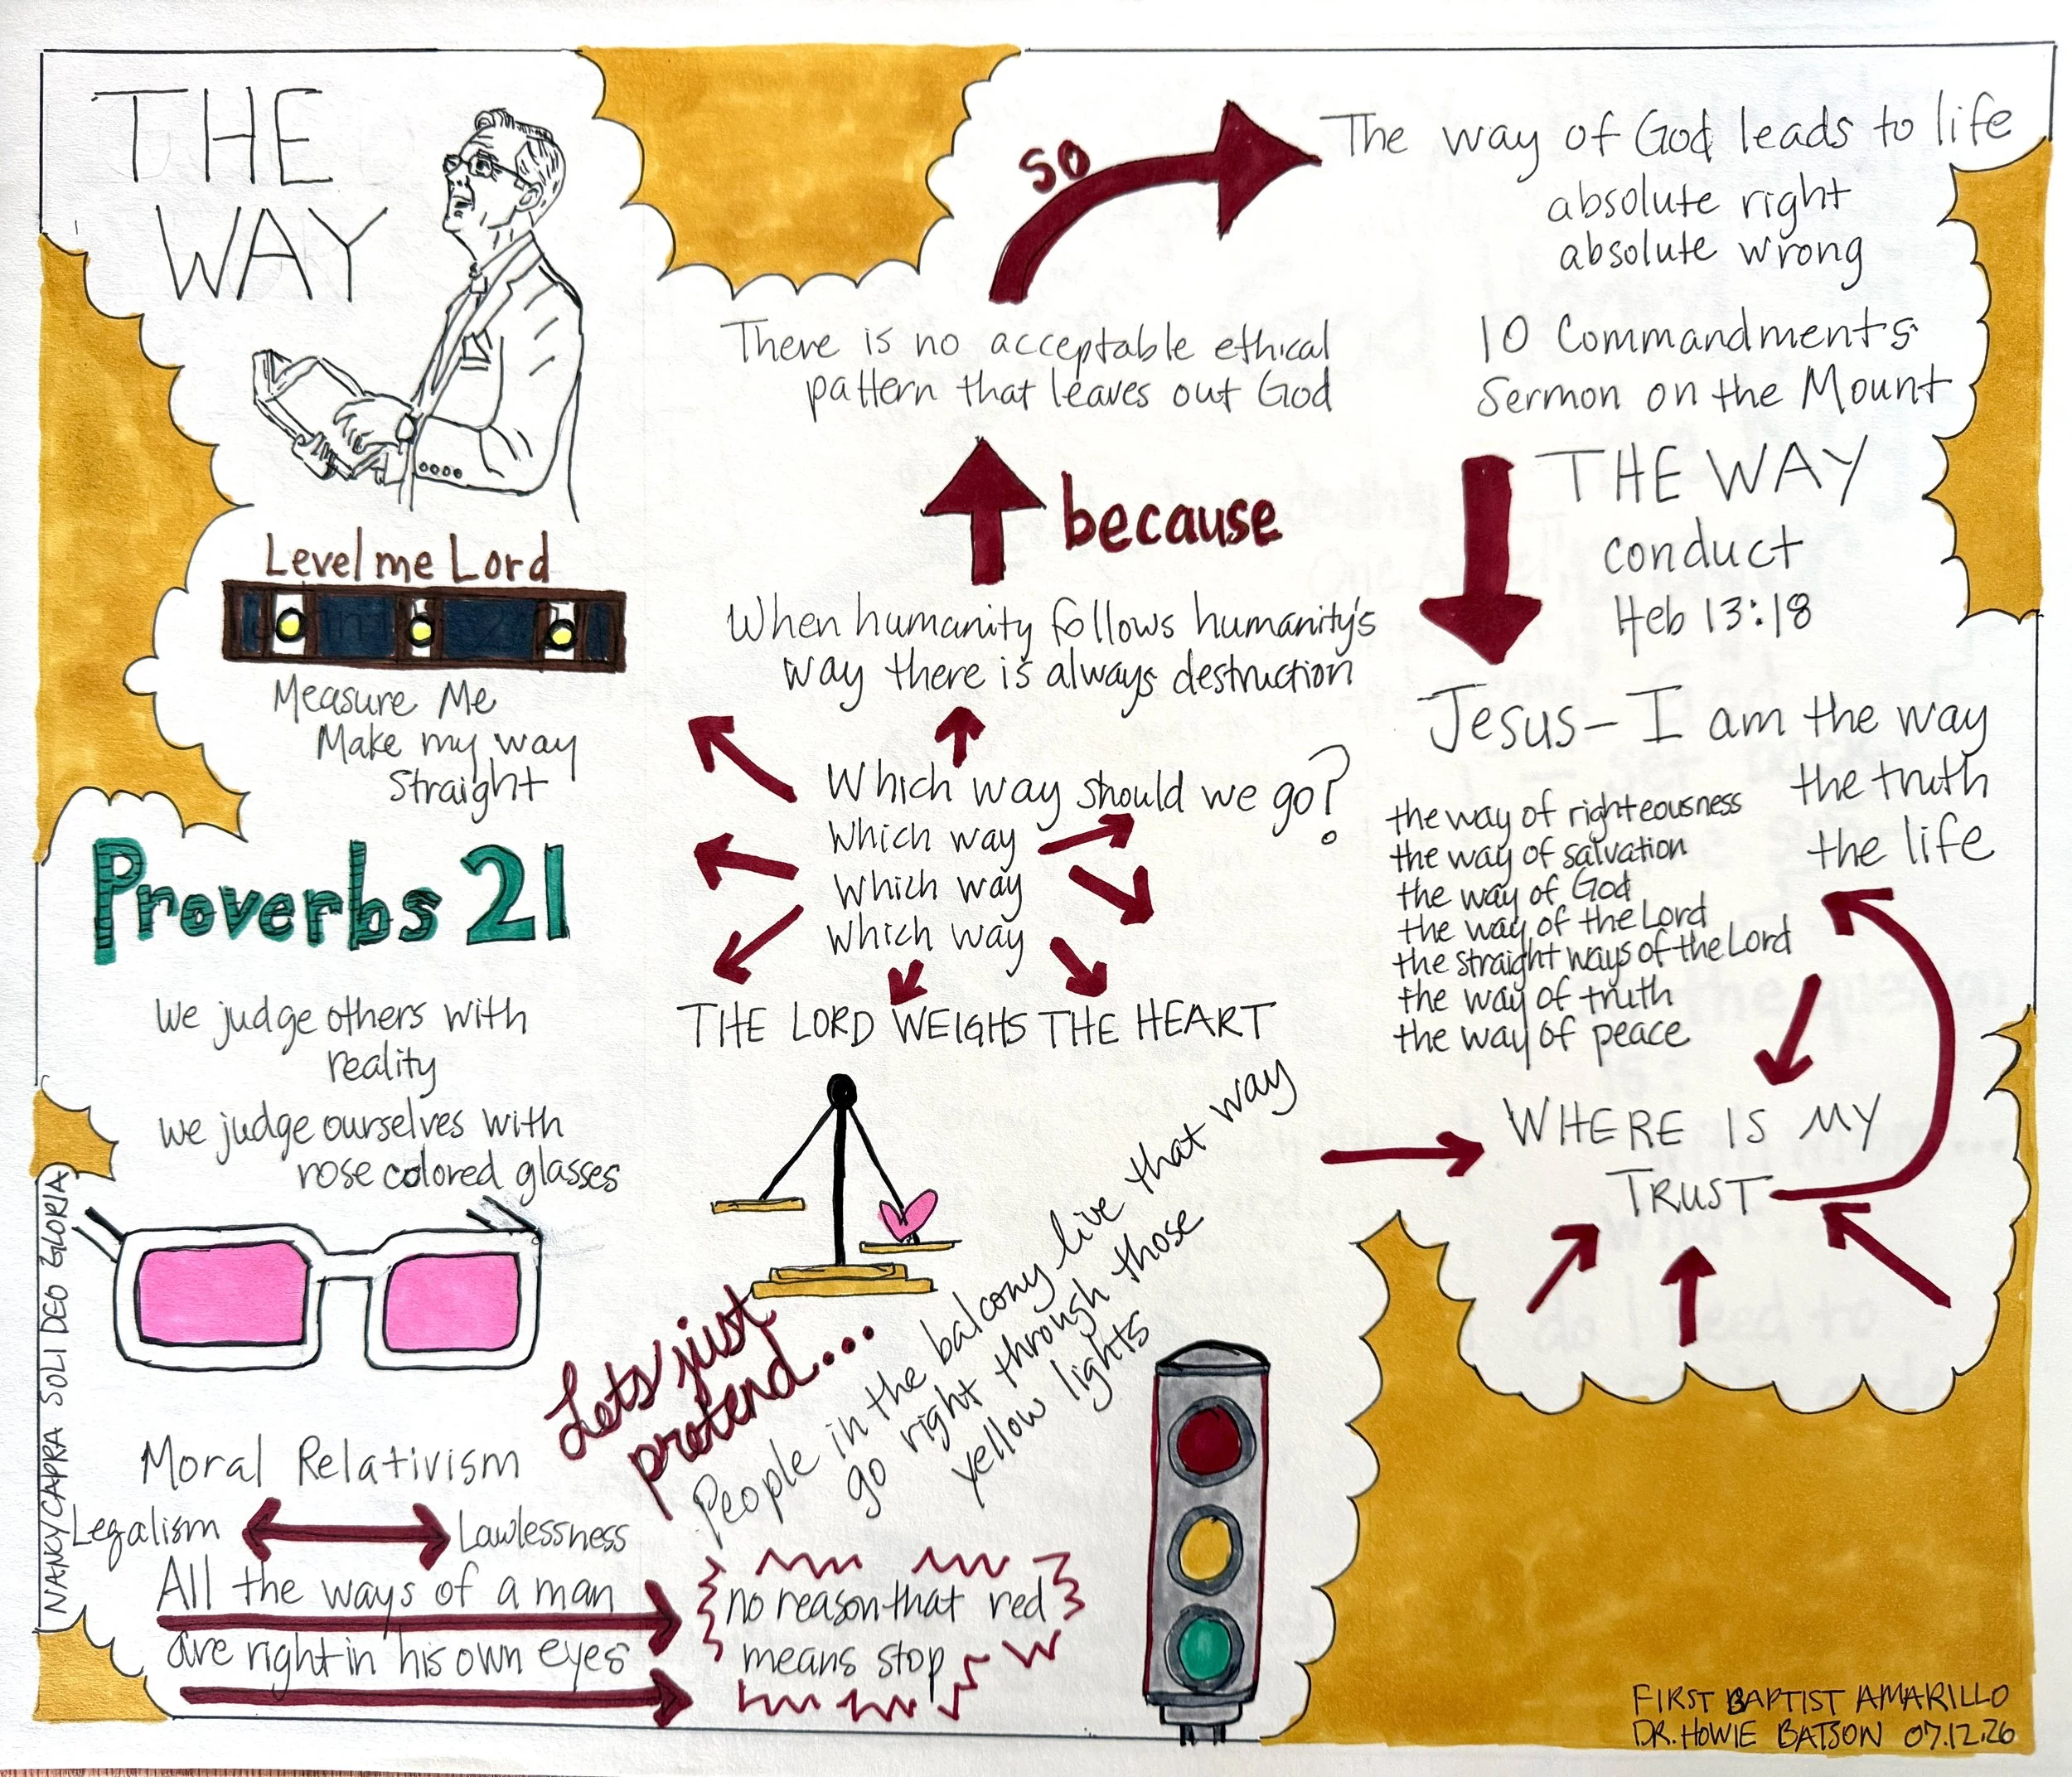 THE
WAY
Level me Lord
Measure Me
Make my way
Straight
Proverbs 21
We judge others with
reality
we judge ourselves with
rose colored glasses
Moral Relativism
Legalism
Lawlessness
All the ways of a man
are right in his own eyes
NANCY CAPRA SOLI DEO GLORIA
so
There is no acceptable ethical
pattern that leaves out God
because
When humanity follows humanity's
way there is always destruction
Which way should we go?
Which way
Which way
Which way
THE LORD WEIGHS THE HEART
Lets just
pretend...
People in the balcony live that way
go right through those
yellow lights
no reason that red
means stop
The way of God leads to life
absolute right
absolute wrong
10 Commandments
Sermon on the Mount
THE WAY
conduct
Heb 13:18
Jesus - I am the way
the truth
the life
the way of righteousness
the way of salvation
the way of God
the way of the Lord
the straight ways of the Lord
the way of truth
the way of peace
WHERE IS MY
TRUST
FIRST BAPTIST AMARILLO
DR. HOWIE BATSON 07.12.26